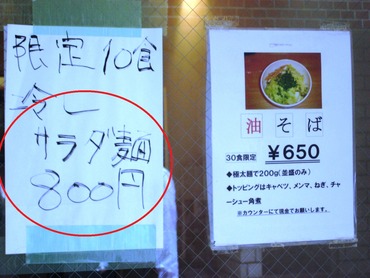 限定10食
冷し
サラダ麺
800円
油そば
30食限定 ¥650
◆極太麺で200g(並盛のみ)
◆トッピングはキャベツ、メンマ、ねぎ、チャ
ーシュー角煮
※カウンターにて現金でお願いします。